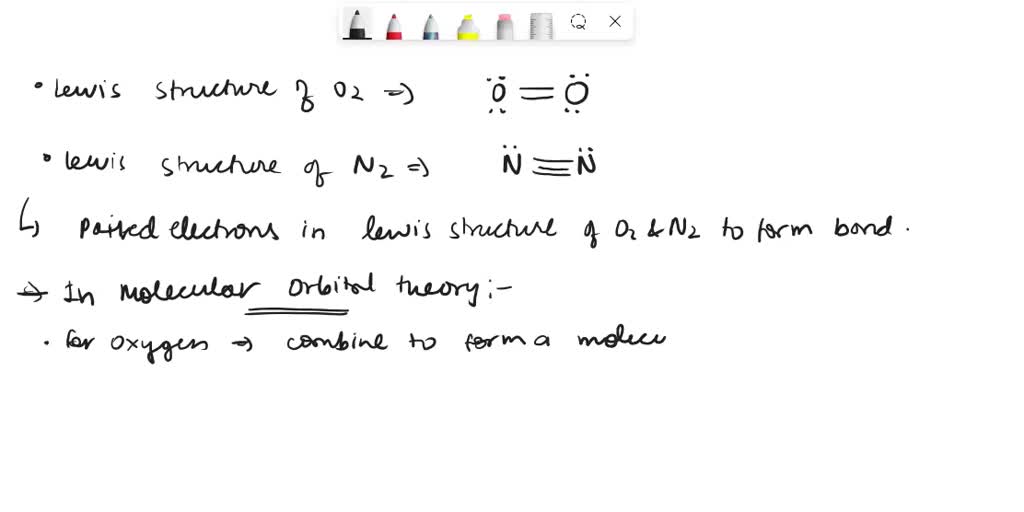 • Lewis structure of O2 ⇒ Ö = Ö
• Lewis structure of N2 ⇒ N̈ ≡ N̈
↳ Paired electrons in lewis structure of O2 & N2 to form bond.
→ In molecular orbital theory:-
• for oxygen → combine to form a molecu